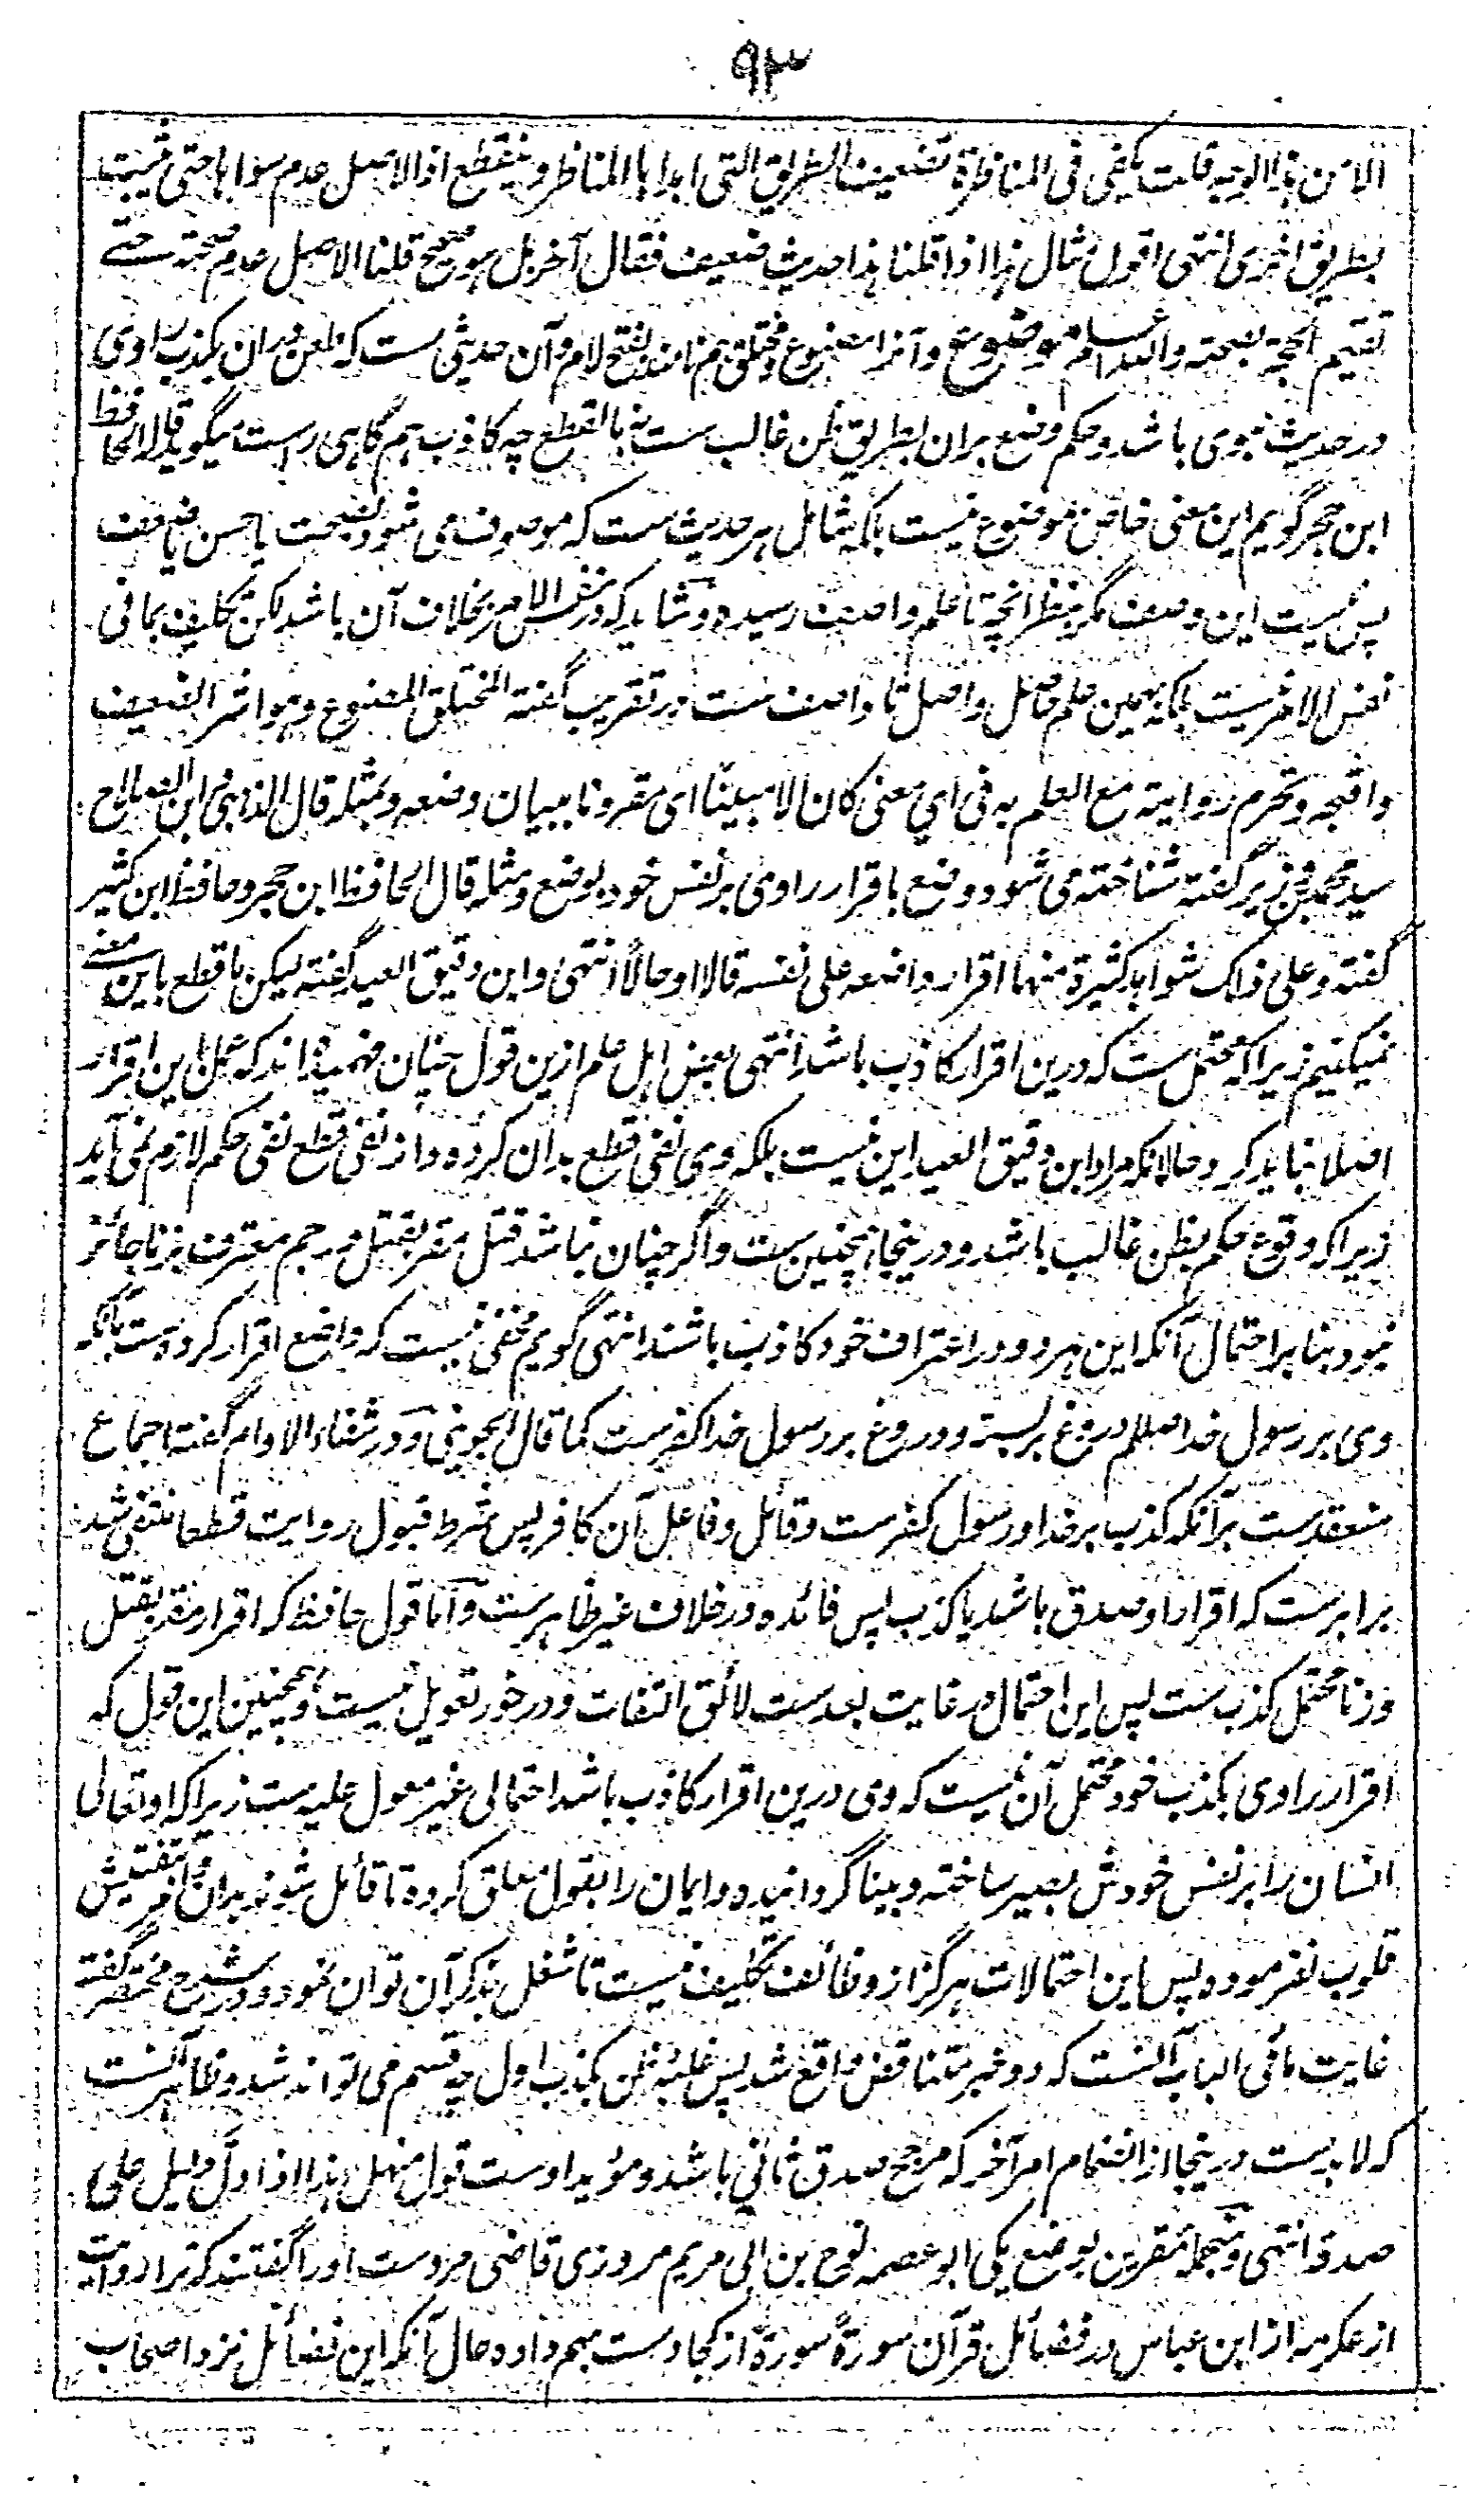 ۹۳
الا من هذا الوجه قلت یکفی فی المناظرة تضعیف الطریق التی ابداها المناظر و ینقطع اذ الاصل عدم سواها حتی یثبت
بطریق اخری انتهی اقول مثال هذا اذا قلنا هذا حدیث ضعیف فقال آخر بل هو صحیح قلنا الاصل عدم صحته حتی
تقیم الحجة بصحته والله اعلم موضوع و آنرا مصنوع و مختلق هم نامند بفتح لام و آن حدیثی ست که طعن در ان بکذب راوی
در حدیث نبوی باشد و حکم وضع بران بطریق ظن غالب ست نه بالقطع چه کاذب هم گاهی راست میگوید قاله الحافظ
ابن حجر گویم این معنی خاص موضوع نیست بلکه شامل هر حدیث ست که موصوف می شود بصحت یا حسن یا ضعف
پس نیست این وصف مگر بنظر انچه تا علم واصف رسیده و شاید که در نفس الامر بخلاف آن باشد لکن تکلیف بما فی
نفس الامر نیست بلکه بهمین علم حاصل واصل تا واصف ست در تقریب گفته المختلق المصنوع و هو اشر الضعیف
واقبحه و تحرم روایته مع العلم به فی ای معنی کان الا مبینا ای مقرونا ببیان وضعه و بمثله قال الذهبی و ابن الصلاح
سید محمد وزیر گفته شناخته می شود وضع باقرار راوی بر نفس خود بوضع و مثله قال الحافظ ابن حجر و حافظ ابن کثیر
گفته و علی ذلک شواهد کثیرة منها اقرار واضعه علی نفسه قالا او حالا انتهی و ابن دقیق العید گفته لیکن ما قطع باین معنی
نمیکنیم زیرا که محتمل ست که درین اقرار کاذب باشد انتهی بعض اهل علم ازین قول چنان فهمیده اند که عمل باین اقرار
اصلا نباید کرد و حالانکه مراد ابن دقیق العید این نیست بلکه وی نفی قطع بدان کرده و از نفی قطع نفی حکم لازم نمی آید
زیرا که وقوع حکم بظن غالب باشد و در ینجا همچنین ست و اگر چنان نباشد قتل مقر بقتل و رجم معترف بزنا جائز
نبود بنا بر احتمال آنکه این هر دو در اعتراف خود کاذب باشند انتهی گویم مخفی نیست که واضع اقرار کرده ست بآنکه
وی بر رسول خدا صلعم دروغ بربسته و دروغ بر رسول خدا کفر ست کما قال الجوینی و در شفاء الاوام گفته اجماع
منعقد ست برآنکه کذب بر خدا و رسول کفر ست و قائل و فاعل آن کافر پس شرط قبول روایت قطعا منتفی شد
برابر ست که اقرار او صدق باشد یا کذب پس فائده در خلاف غیر ظاهر ست و اما قول حافظ که اقرار مقر بقتل
و زنا محتمل کذب ست پس این احتمال در غایت بعد ست لائق التفات و در خور تعویل نیست و همچنین این قول که
اقرار راوی بکذب خود محتمل آن نیست که وی درین اقرار کاذب باشد احتمالی غیر معول علیه ست زیرا که او تعالی
انسان را بر نفس خودش بصیر ساخته و بینا گردانیده و ایمان را بقول معلق کرده تا قائل شوند بدان و امر بتفتیش
قلوب نفرموده پس این احتمالات هرگز از وظائف تکلیف نیست تا شغل بذکر آن توان نمود و در شرح مختصر گفته
غایت ما فی الباب آنست که دو خبر متناقض واقع شد پس غلبه ظن بکذب اول چه قسم می تواند شد و ظاهر آنست
که لابد ست در ینجا از انضمام امر آخر که مرجح صدق ثانی باشد و موید اوست قول منهل هذا اذا دل دلیل علی
صدقه انتهی و منجمله مقرین بوضع یکی ابو عصمه نوح بن ابی مریم مروزی قاضی مرو ست او را گفتند که ترا روایت
از عکرمه از ابن عباس در فضائل قرآن سورةً سورةً از کجا دست بهم داده حال آنکه این فضائل نزد اصحاب